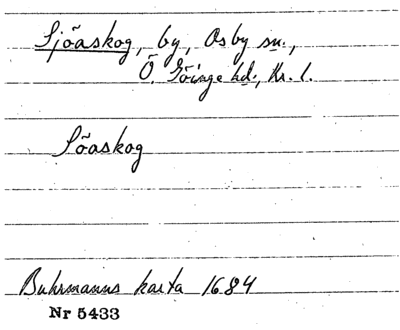 Sjöaskog, by, Osby sn.,
Ö. Göinge hd., Kr. l.
Söaskog
Buhrmanns karta 1684
Nr 5433